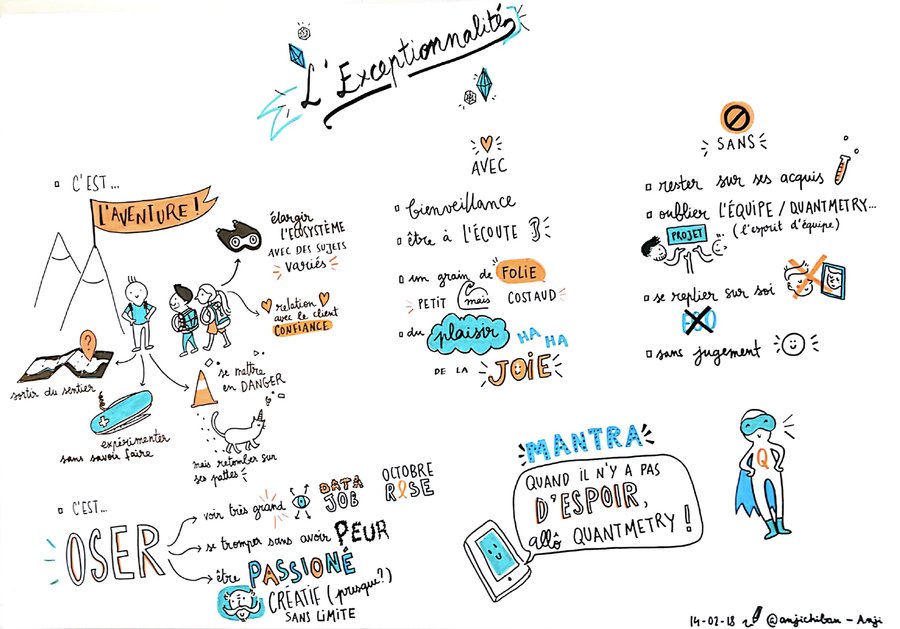 L'Exceptionnalité
C'EST...
L'AVENTURE !
élargir
L'ECOSYSTÈME
AVEC DES SUJETS
VARIÉS
relation
avec le client
CONFIANCE
?
sortir du sentier
expérimenter
sans savoir faire
se mettre
en DANGER
mais retomber sur
ses pattes
C'EST...
OSER
voir très grand
DATA
JOB
OCTOBRE
ROSE
se tromper sans avoir PEUR
être PASSIONÉ
CRÉATIF (presque?)
SANS LIMITE
AVEC
bienveillance
être à L'ÉCOUTE
un grain de FOLIE
PETIT mais COSTAUD
du plaisir
HA HA
HA
DE LA JOIE
SANS
rester sur ses acquis
oublier L'ÉQUIPE / QUANTMETRY...
(l'esprit d'équipe)
PROJET
se replier sur soi
sans jugement
MANTRA
QUAND IL N'Y A PAS
D'ESPOIR,
allô QUANTMETRY !
Q
14-02-18 @anjichiban - Anji